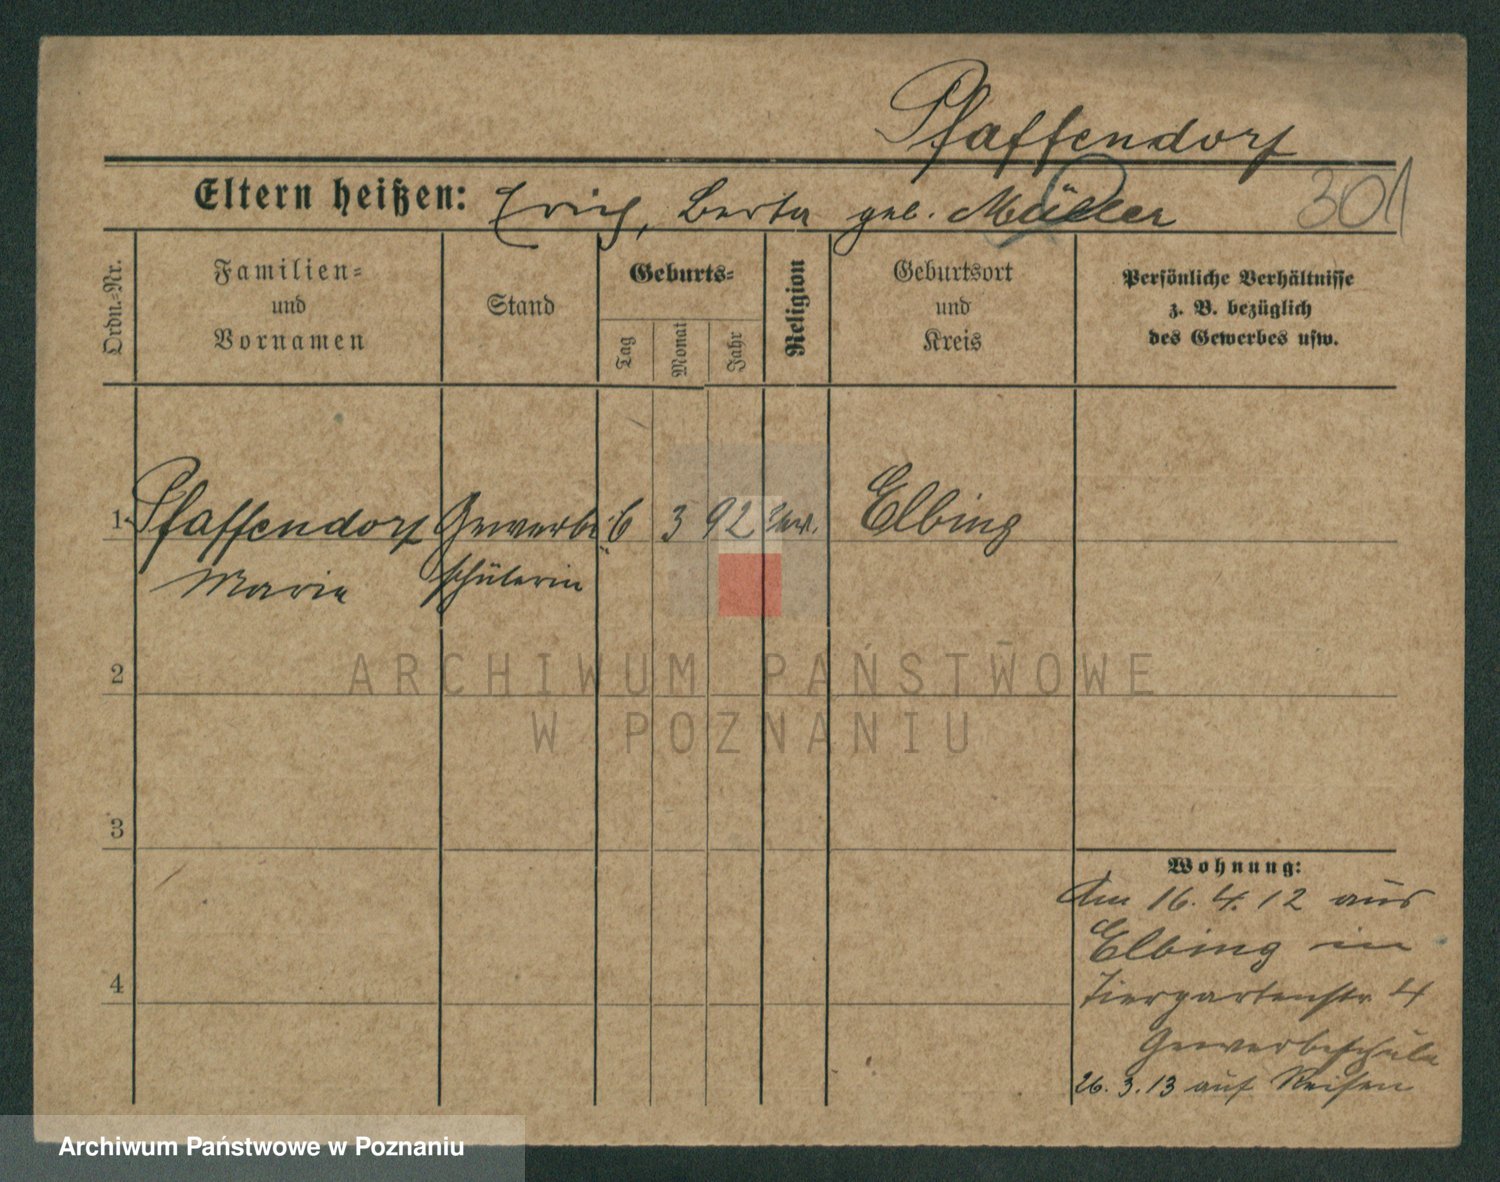 Pfaffendorf
Eltern heißen: Erich, Berta geb. Müller 301
Ordn.-Nr.
Familien-
und
Vornamen
Stand
Geburts-
Tag
Monat
Jahr
Religion
Geburtsort
und
Kreis
Persönliche Verhältnisse
z. B. bezüglich
des Gewerbes usw.
1 Pfaffendorf Gewerbe- 6 3 92 Elbing
Marie schülerin
2
3
4
Wohnung:
Am 16. 4. 12 aus
Elbing in
Tiergartenstr 4
Gewerbeschule
26. 3. 13 auf Reisen
ARCHIWUM PAŃSTWOWE
W POZNANIU
Archiwum Państwowe w Poznaniu